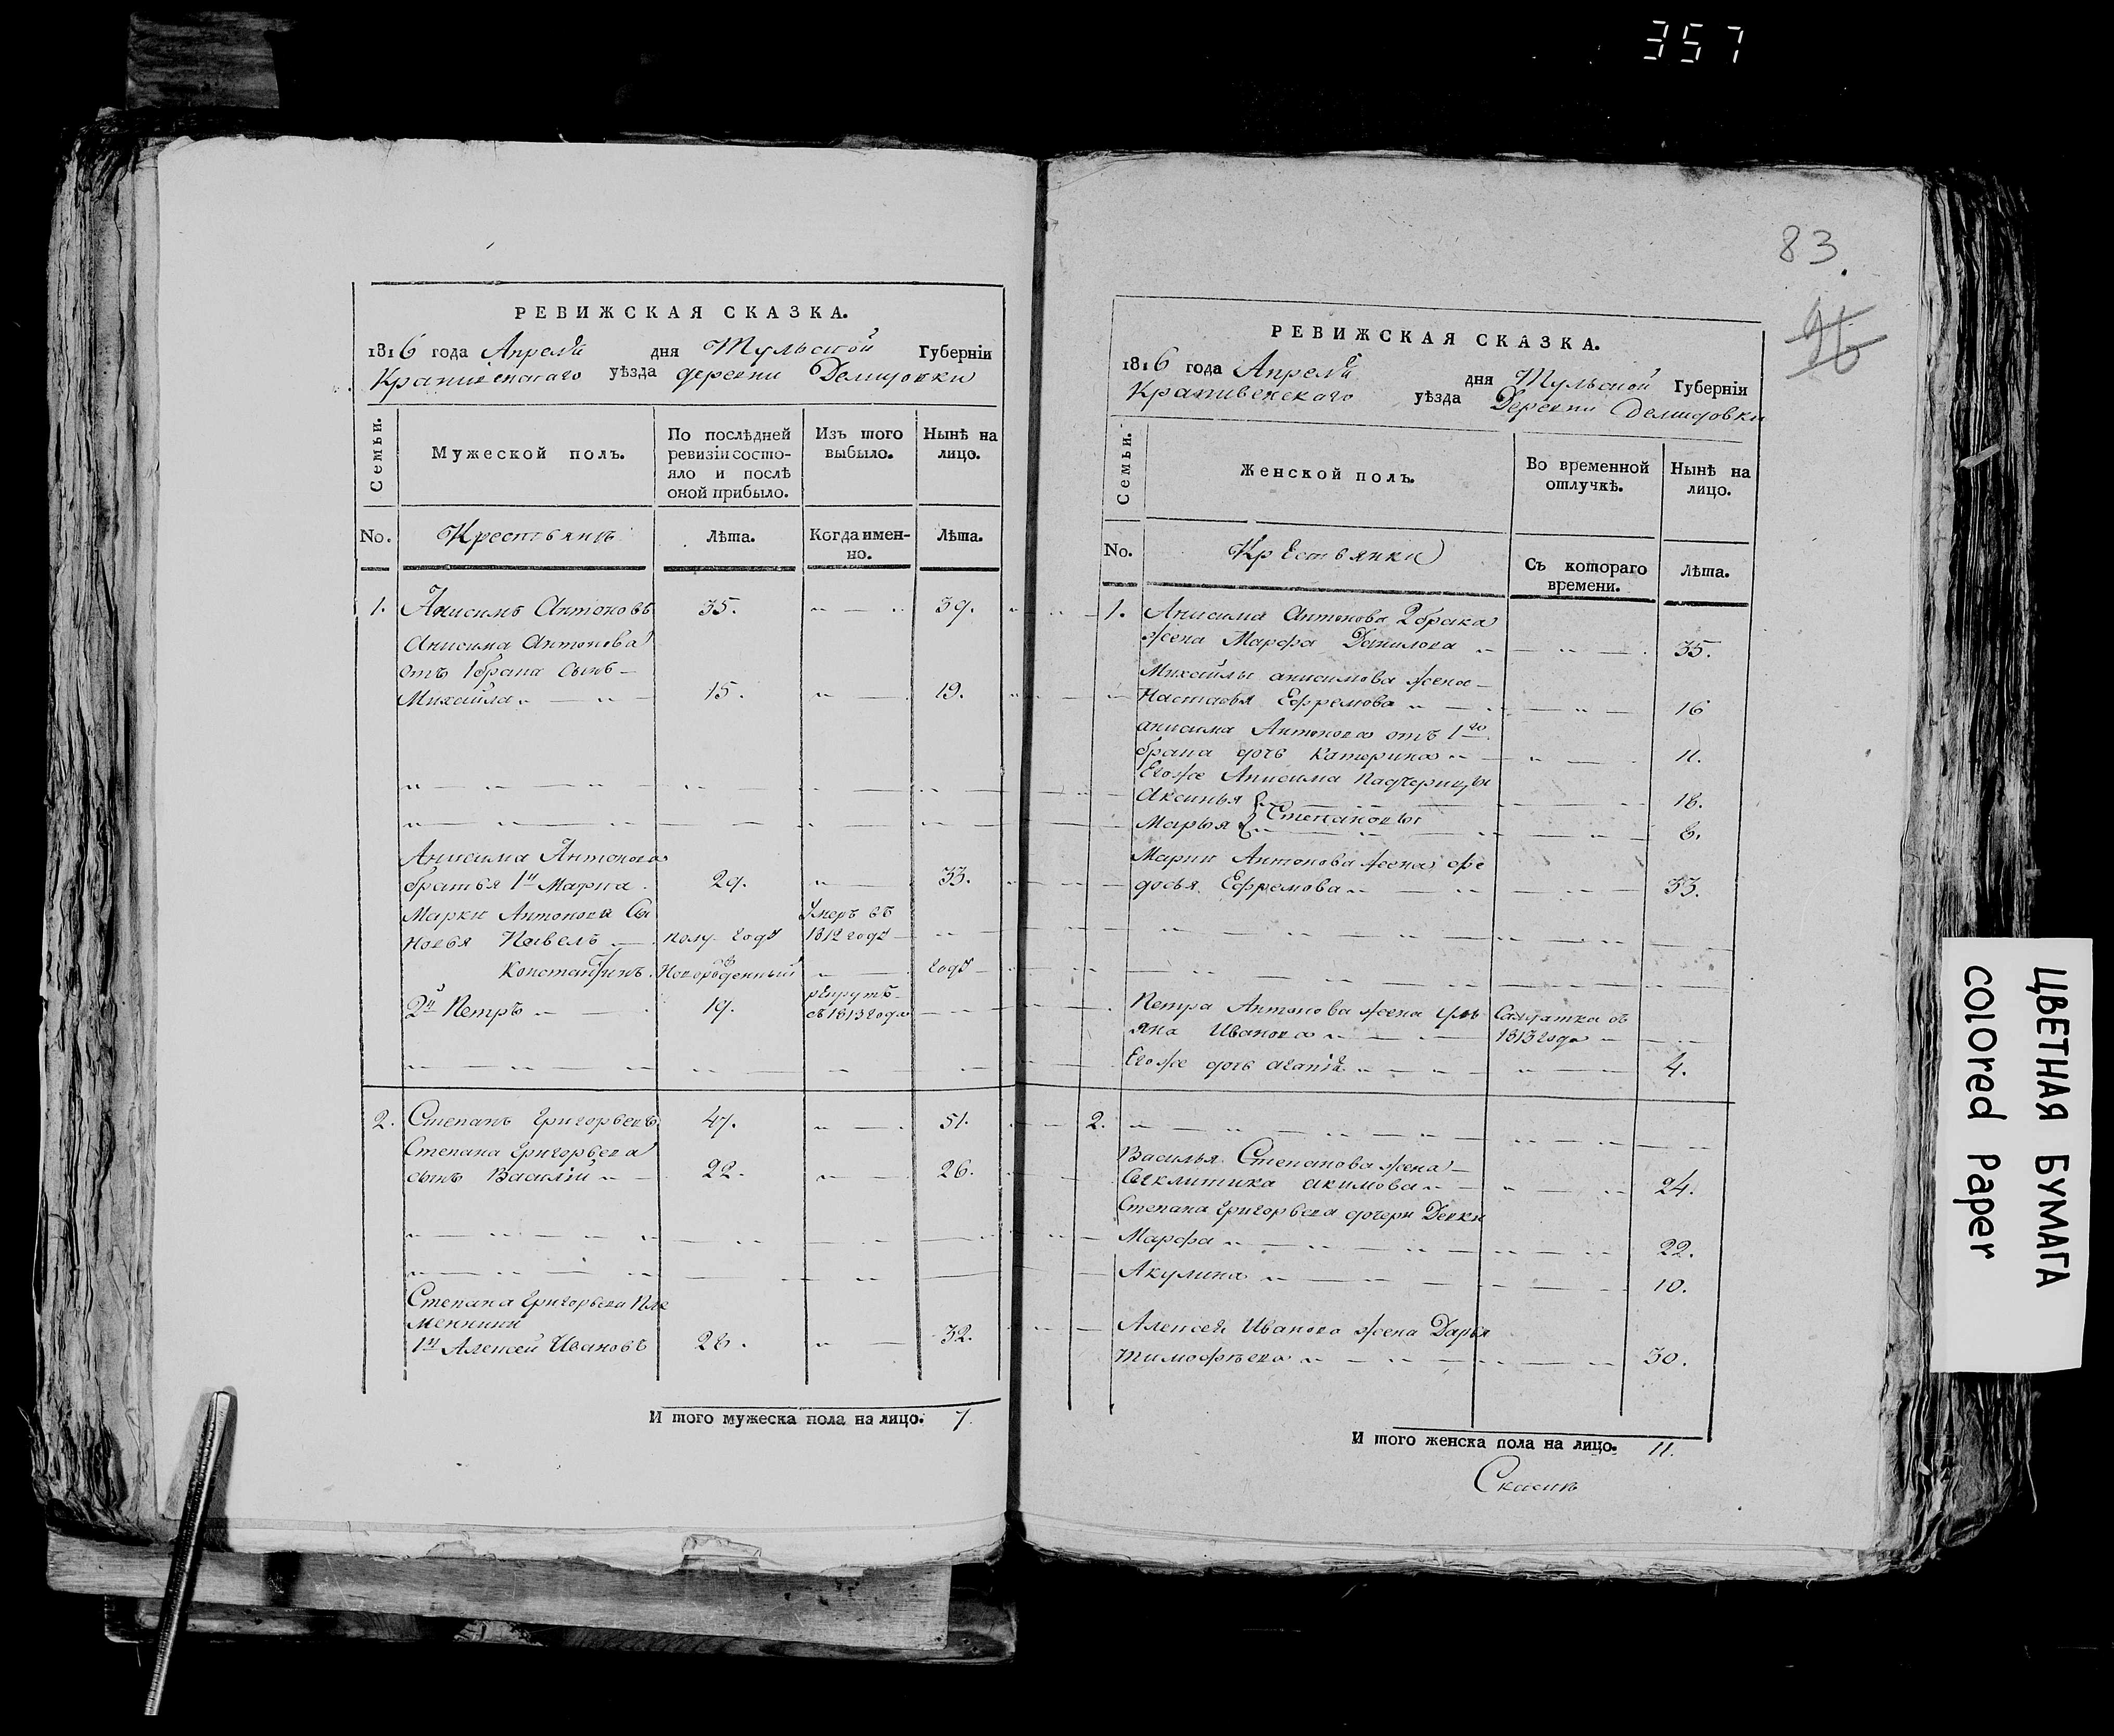 357
РЕВИЖСКАЯ СКАЗКА.
1816 года Апреля дня Тульской Губерніи
Крапивенскаго уѣзда деревни Демидовки
Семьи.
Мужеской полъ.
По послѣдней ревизіи состо-
яло и послѣ
оной прибыло.
Изъ того
выбыло.
Нынѣ на
лицо.
No. Крестьянъ Лѣта. Когда имен-
но. Лѣта.
1. Анисимъ Антоновъ 35. 39.
Анисима Антонова
отъ 1 брака сынъ
Михайла 15. 19.
Анисима Антонова
братья 1й Марка 29. 33.
Марки Антонова сы Умеръ въ
новья Павелъ полу года 1812 годе
Константинъ Новорожденный года
2й Петръ 19. рекрутъ
съ 1813 года
2. Степанъ Григорьевъ 47. 51.
Степана Григорьева
сынъ Василий 22. 26.
Степана Григорьева Пле
менники
1й Алексей Ивановъ 28. 32.
И того мужеска пола на лицо. 7.
83.
96
РЕВИЖСКАЯ СКАЗКА.
1816 года Апреля дня Тульской Губерніи
Крапивенскаго уѣзда Деревни Демидовки
Семьи.
Женской полъ.
Во временной
отлучкѣ.
Нынѣ на
лицо.
No. Крестьянки Съ котораго
времени. Лѣта.
1. Анисима Антонова 2 брака
жена Марфа Данилова 35.
Михайлы анисимова жена
Настасья Ефремова 16
анисима Антонова отъ 1го
брака дочь Катерина 11.
Егоже Анисима падчерицы
Аксинья 18.
Степановы
Марья 8.
Марки Антонова жена фе
досья Ефремова 33.
Петра Антонова жена Уль Салдатка съ
яна Иванова 1813 года
Егоже дочь 4.
2.
Василья Степанова жена
Секлитика акимова 24.
Степана Григорьева дочери Девки
Марфа 22.
Акулина 10.
Алексея Иванова жена Дарья
тимофѣева 30.
И того женска пола на лицо. 11.
ЦВЕТНАЯ БУМАГА
COLORED PAPER